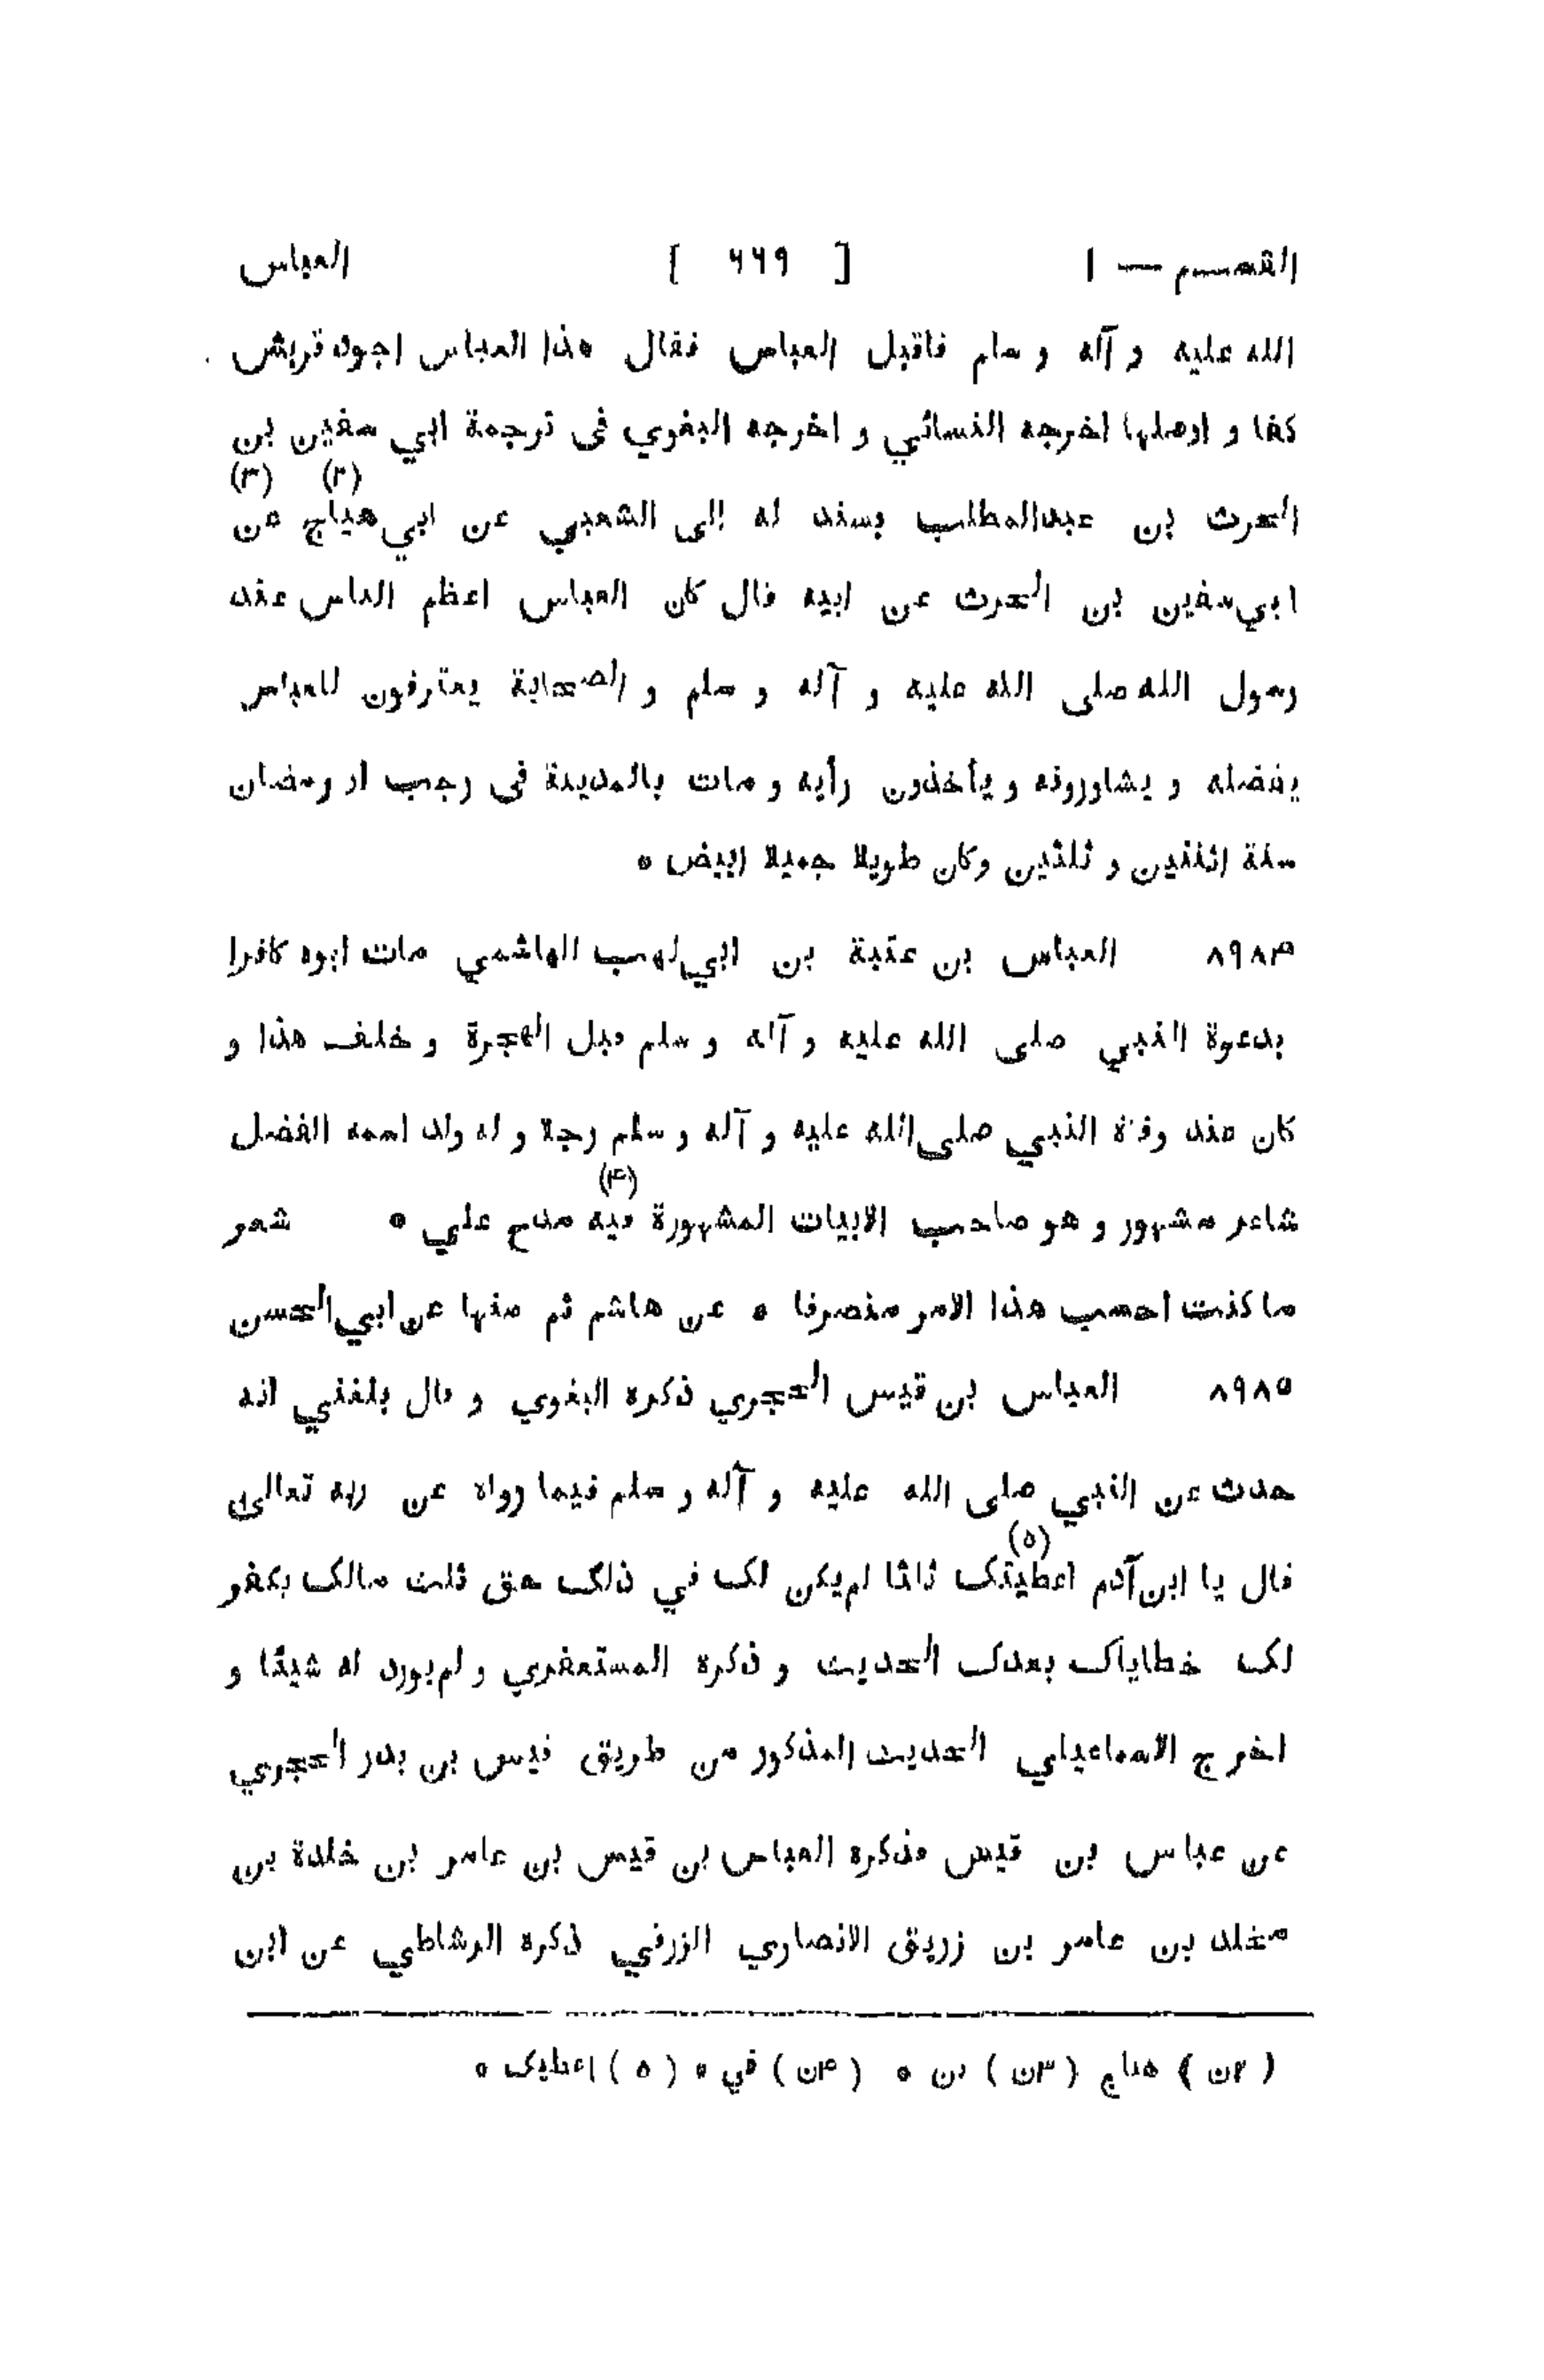 القسم — ١ [ ٦٦٩ ] العباس
الله عليه و آله و سلم فاقبل العباس فقال هذا العباس اجود قريش
كفا و اوصلها اخرجه النسائي و اخرجه البغوي فى ترجمة ابي سفين بن
(٢) (٣)
الحرث بن عبدالمطلب بسند له الى الشعبي عن ابي هياج عن
ابي سفين بن الحرث عن ابيه قال كان العباس اعظم الناس عند
رسول الله صلى الله عليه و آله و سلم و الصحابة يعترفون للعباس
بفضله و يشاورونه و يأخذون رأيه و مات بالمدينة فى رجب او رمضان
سنة اثنتين و ثلثين وكان طويلا جميلا ابيض *
٨٩٨۴ العباس بن عتبة بن ابي لهب الهاشمي مات ابوه كافرا
بدعوة النبي صلى الله عليه و آله و سلم قبل الهجرة و خلف هذا و
كان عند وفاة النبي صلى الله عليه و آله و سلم رجلا و له ولد اسمه الفضل
(۴)
شاعر مشهور و هو صاحب الابيات المشهورة فيه مدح علي * شعر
ما كنت احسب هذا الامر منصرفا * عن هاشم ثم منها عن ابي الحسن
٨٩٨٥ العباس بن قيس الحجري ذكره البغوي و قال بلغني انه
حدث عن النبي صلى الله عليه و آله و سلم فيما رواه عن ربه تعالى
(٥)
قال يا ابن آدم اعطيتك ثلثا لم يكن لك في ذلك حق ثلث مالك بكفر
لك خطاياك بعدك الحديث و ذكره المستغفري و لم يورد له شيئا و
اخرج الاسماعيلي الحديث المذكور من طريق قيس بن بدر الحجري
عن عباس بن قيس فذكره العباس بن قيس بن عامر بن خلدة بن
مخلد بن عامر بن زريق الانصاري الزرقي ذكره الرشاطي عن ابن
( ٢ن ) هناج ( ٣ن ) بن * ( ۴ن ) في * ( ٥ ) اعطيك *